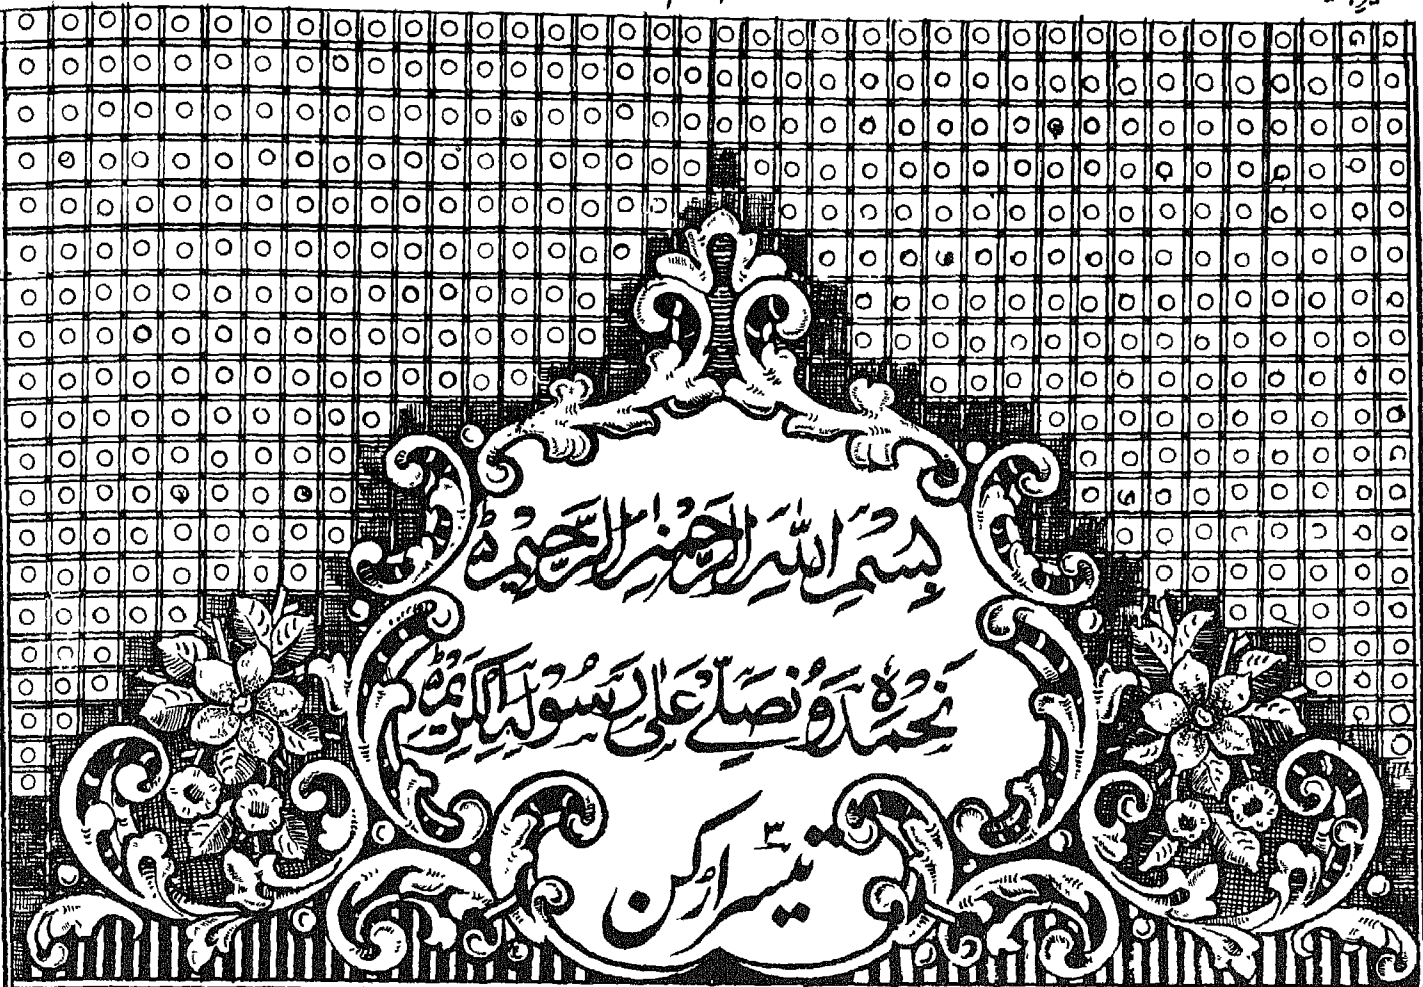 بِسْمِ اللّٰهِ الرَّحْمٰنِ الرَّحِیْمِ
نَحْمَدُهٗ وَنُصَلِّیْ عَلٰی رَسُوْلِهِ الْكَرِیْمِ
تیسرا رکن